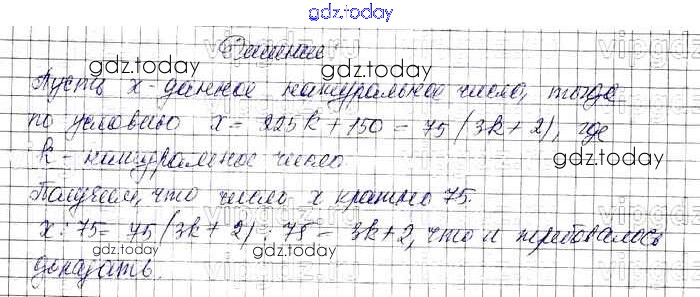 gdz.today
Решение
gdz.today gdz.today
Пусть x - данное натуральное число, тогда
по условию x = 225k + 150 = 75(3k + 2), где
gdz.today
k - натуральное число
Получаем, что число x кратно 75.
x : 75 = 75(3k + 2) : 75 = 3k + 2, что и требовалось
gdz.today gdz.today
доказать.